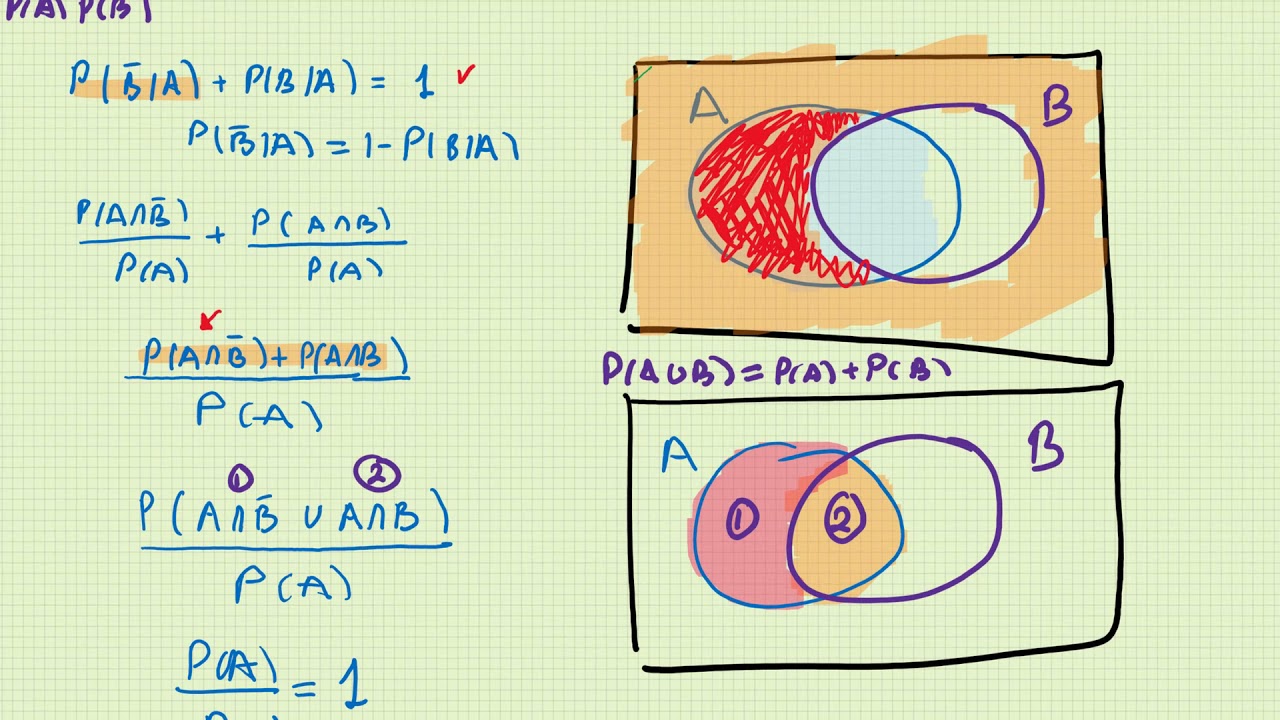 P(A) P(B)
P(B̄/A) + P(B/A) = 1 ✓
P(B̄/A) = 1 - P(B/A)
P(A∩B̄)/P(A) + P(A∩B)/P(A)
P(A∩B̄) + P(A∩B)
P(A)
① ②
P(A∩B̄ ∪ A∩B)
P(A)
P(A)
= 1
A B
P(A∪B) = P(A) + P(B)
A B
① ②